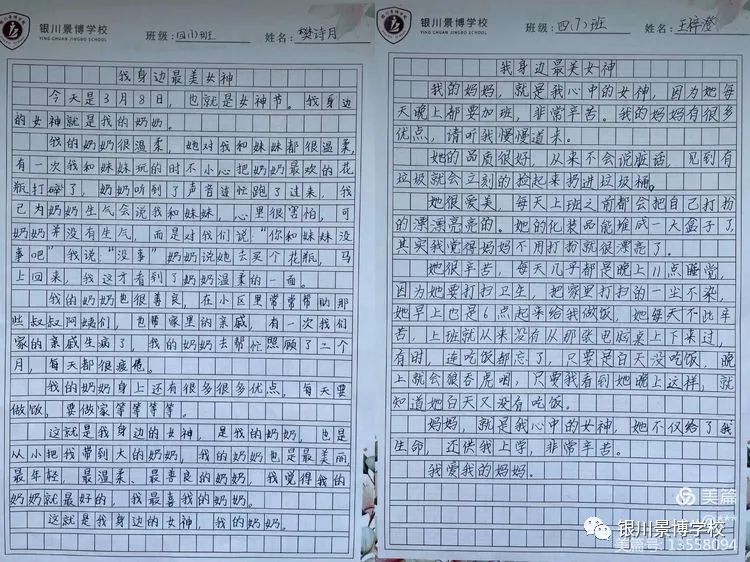 银川景博学校
YING CHUAN JINGBO SCHOOL
班级: 四(1)班 姓名: 樊诗月
我身边最美女神
今天是3月8日,也就是女神节。我身边
的女神就是我的奶奶。
我的奶奶很温柔,她对我和妹妹都很温柔,
有一次我和妹妹玩的时不小心把奶奶最欢的花
瓶打碎了,奶奶听到了声音连忙跑了过来,我
已为奶奶生气会说我和妹妹,心里很害怕,可
奶奶并没有生气,而是对我们说:“你和妹妹没
事吧”我说:“没事”奶奶说她去买个花瓶,马
上回来,我这才看到了奶奶温柔的一面。
我的奶奶也很善良,在小区里常常帮助那
些叔叔阿姨们,也帮家里的亲戚,有一次我们
家的亲戚生病了,我的奶奶去帮忙照顾了二个
月,每天都很疲倦。
我的奶奶身上还有很多很多优点。每天要
做饭,要做家等等等等。
这就是我身边的女神,是我的奶奶,也是
从小把我带到大的奶奶,我的奶奶也是最美丽,
最年轻,最温柔、最善良的奶奶,我觉得我的
奶奶就最好的,我最喜我的奶奶。
这就是我身边的女神,我的奶奶。
银川景博学校
YING CHUAN JINGBO SCHOOL
班级: 四(7)班 姓名: 王梓澄
我身边最美女神
我的妈妈,就是我心中的女神,因为她每
天晚上都要加班,非常辛苦。我的妈妈有很多
优点,请听我慢慢道来。
她的品质很好,从来不会说脏话,见到有
垃圾就会立刻的捡起来扔进垃圾桶。
她很爱美,每天上班之前都会把自己打扮
的漂漂亮亮的。她的化装品能堆成一大盒子了,
其实我觉得妈妈不用打扮就很漂亮了。
她很辛苦,每天几乎都是晚上11点睡觉,
因为她要打扫卫生,把家里打扫的一尘不染,
她早上也是6点起来给我做饭,她每天不此辛
苦,上班就从来没有从那张电脑桌上下来过,
有时,连吃饭都忘了,只要是白天没吃饭,晚
上就会狼吞虎咽,只要我看到她晚上这样,就
知道她白天又没有吃饭。
妈妈,就是我心中的女神,她不仅给了我
生命,还供我上学,非常辛苦。
我爱我的妈妈.
美篇
银川景博学校
美篇号: 13558094